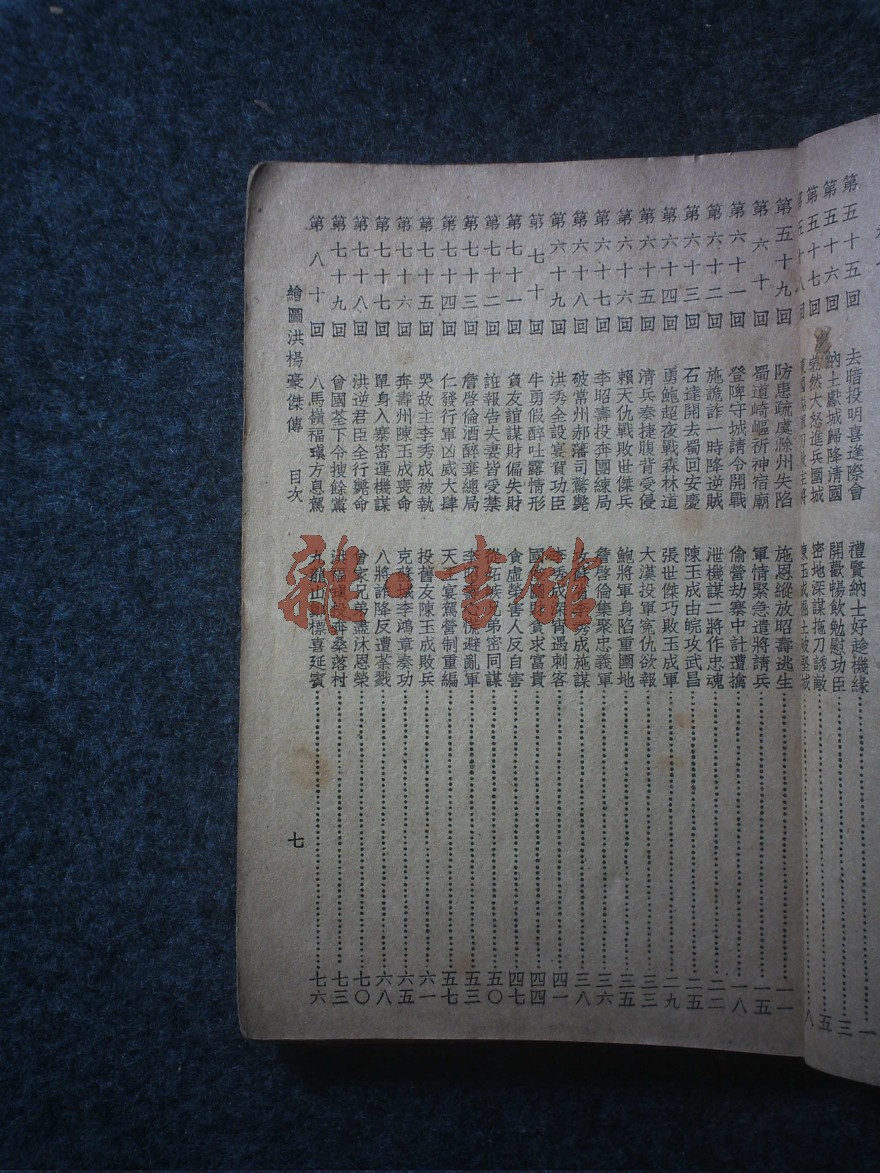 第五十五回 去暗投明喜逢際會 禮賢納士好趁機緣 一
第五十六回 納土獻城歸降清國 開觀暢飲勉慰功臣 三
第五十七回 勃然大怒進兵圍城 密地深謀拖刀誘敵 五
第五十八回 八
第五十九回 防患疏虞滁州失陷 施恩縱放昭壽逃生 一一
第六十回 蜀道崎嶇祈神宿廟 軍情緊急遣將請兵 一五
第六十一回 登陴守城請令開戰 偷營劫寨中計遭擒 一八
第六十二回 施詭詐一時降逆賊 泄機謀二將作忠魂 二二
第六十三回 石達開去蜀回安慶 陳玉成由皖攻武昌 二五
第六十四回 勇鮑超夜戰森林道 張世傑巧敗玉成軍 二九
第六十五回 清兵奏捷腹背受侵 大漢投軍寃仇欲報 三三
第六十六回 賴天仇戰敗世傑兵 鮑將軍身陷重圍地 三五
第六十七回 李昭壽投奔團練局 詹啓倫集聚忠義軍 三六
第六十八回 破常州郝藩司驚斃 攻蘇省李秀成施謀 三八
第六十九回 洪秀全設宴賀功臣 李秀成深宵遇刺客 四一
第七十回 牛勇假醉吐露情形 國圖財貨求富貴 四四
第七十一回 貪友誼謀財偏失財 貪虛榮害人反自害 四七
第七十二回 誑報告夫妻皆受禁 從拓族兄弟密同謀 五〇
第七十三回 詹啓倫酒醉棄總局 李昭壽恐慌避亂軍 五三
第七十四回 仁發行軍凶威大肆 天王宴駕營制重編 五七
第七十五回 哭故主李秀成被執 投舊友陳玉成敗兵 六一
第七十六回 奔壽州陳玉成喪命 克蘇城李鴻章奏功 六五
第七十七回 單身入寨密運機謀 八將詐降反遭荼戮 六八
第七十八回 洪逆君臣全行斃命 曾家兄弟盡沐恩榮 七〇
第七十九回 曾國荃下令搜餘黨 洪福瑱投奔桑落村 七三
第八十回 八馬嶺福瑱方息駕 九龍山錦標喜延賓 七六
繪圖洪楊豪傑傳 目次 七
雜·書館